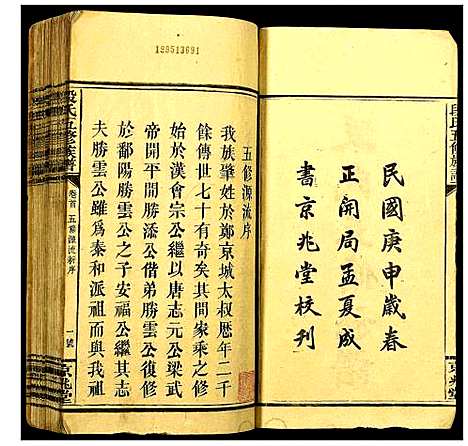 民國庚申歲春
正開局孟夏成
書京兆堂校刊
段氏五修族譜
京兆堂
198513691
五修源流序
我族肇姓於鄭京城太叔曆年二千
餘傳世七十有奇矣其間家乘之修
始於漢會宗公繼以唐志元公梁武
帝開平時勝添公偕弟勝雲公復修
於鄱陽勝雲公子安福公繼其志
夫勝雲公雖爲秦和派祖而與我祖
段氏五修族譜
卷首
五修源流新序
一號
京兆堂